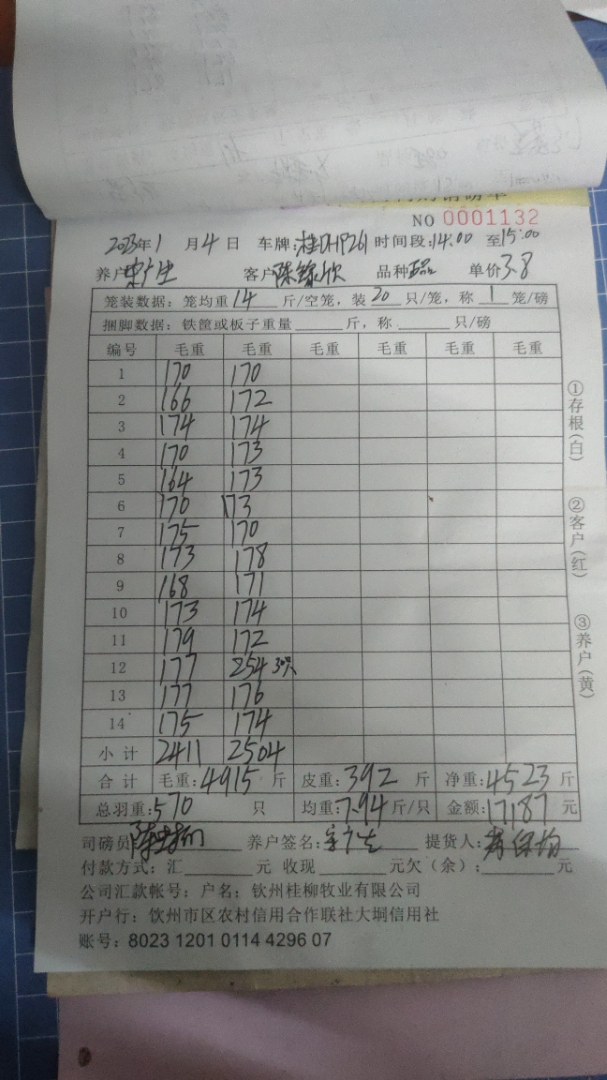 NO 0001132
2023年1月4日 车牌:桂DHP261 时间段:14:00 至15:00
养户 客户陈 品种 单价3.8
笼装数据：笼均重14斤/空笼，装20只/笼，称1笼/磅
捆脚数据：铁筐或板子重量____斤，称____只/磅
编号 毛重 毛重 毛重 毛重 毛重 毛重
1 170 170
2 166 172
3 174 174
4 170 173
5 164 173
6 170 173
7 175 170
8 173 178
9 168 171
10 173 174
11 179 172
12 177 254 30只
13 177 176
14 175 174
小计 2411 2504
合计 毛重:4915斤 皮重:392斤 净重:4523斤
总羽重:570只 均重:7.94斤/只 金额:17187元
司磅员 陈 养户签名: 提货人:
付款方式：汇____元 收现____元欠（余）:____元
公司汇款帐号：户名：钦州桂柳牧业有限公司
开户行：钦州市区农村信用合作联社大垌信用社
账号：8023 1201 0114 4296 07
①存根(白)
②客户(红)
③养户(黄)